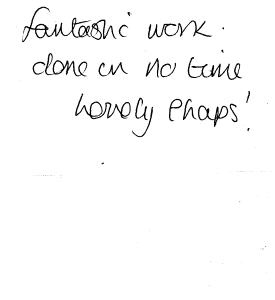 fantastic work.
done in no time
Lovely Chaps!